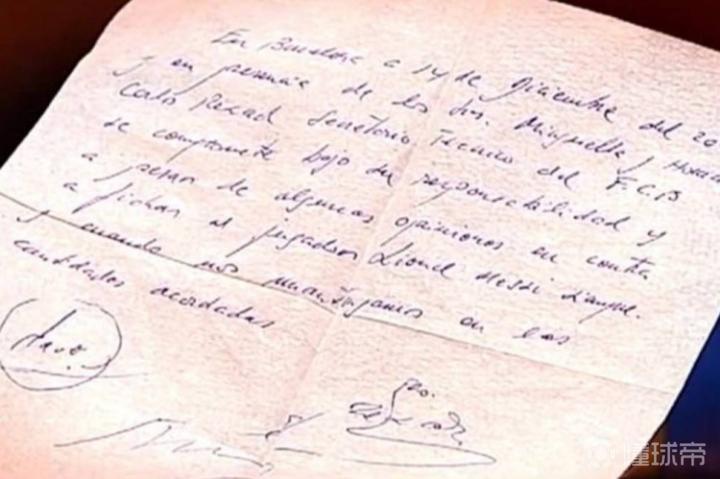 En Barcelona a 14 de Diciembre del 20
y en presencia de los Srs. Minguella y Horacio
Carles Rexach Secretario Técnico del F.C.B
se compromete bajo su responsabilidad y
a pesar de algunas opiniones en contra
a fichar al jugador Lionel Messi siempre
y cuando nos mantengamos en las
cantidades acordadas
懂球帝